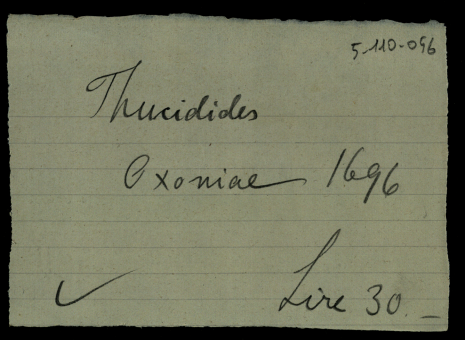 5-110-096
Thucidides
Oxoniae 1696
✓ Lire 30.–